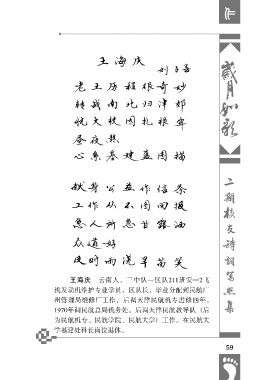 作
王海庆
老王历程很奇妙
转战南北归津郊
航大校园扎根牢
昼夜熬
心系基建蓝图描
工作从不图回报
急人所急甘露洒
众道好
及时雨浇旱苗笑
王海庆 云南人，二中队一区队211班安—2飞
机发动机维护专业学员，区队长，毕业分配到民航广
州管理局维修厂工作。后调天津民航机专进修四年。
1970年调民航总局机务处。后调天津民航教导队（后
为民航机专、民航学院、民航大学）工作。在民航大
学基建处科长岗位退休。
岁月如歌
二期校友诗词写照集
59